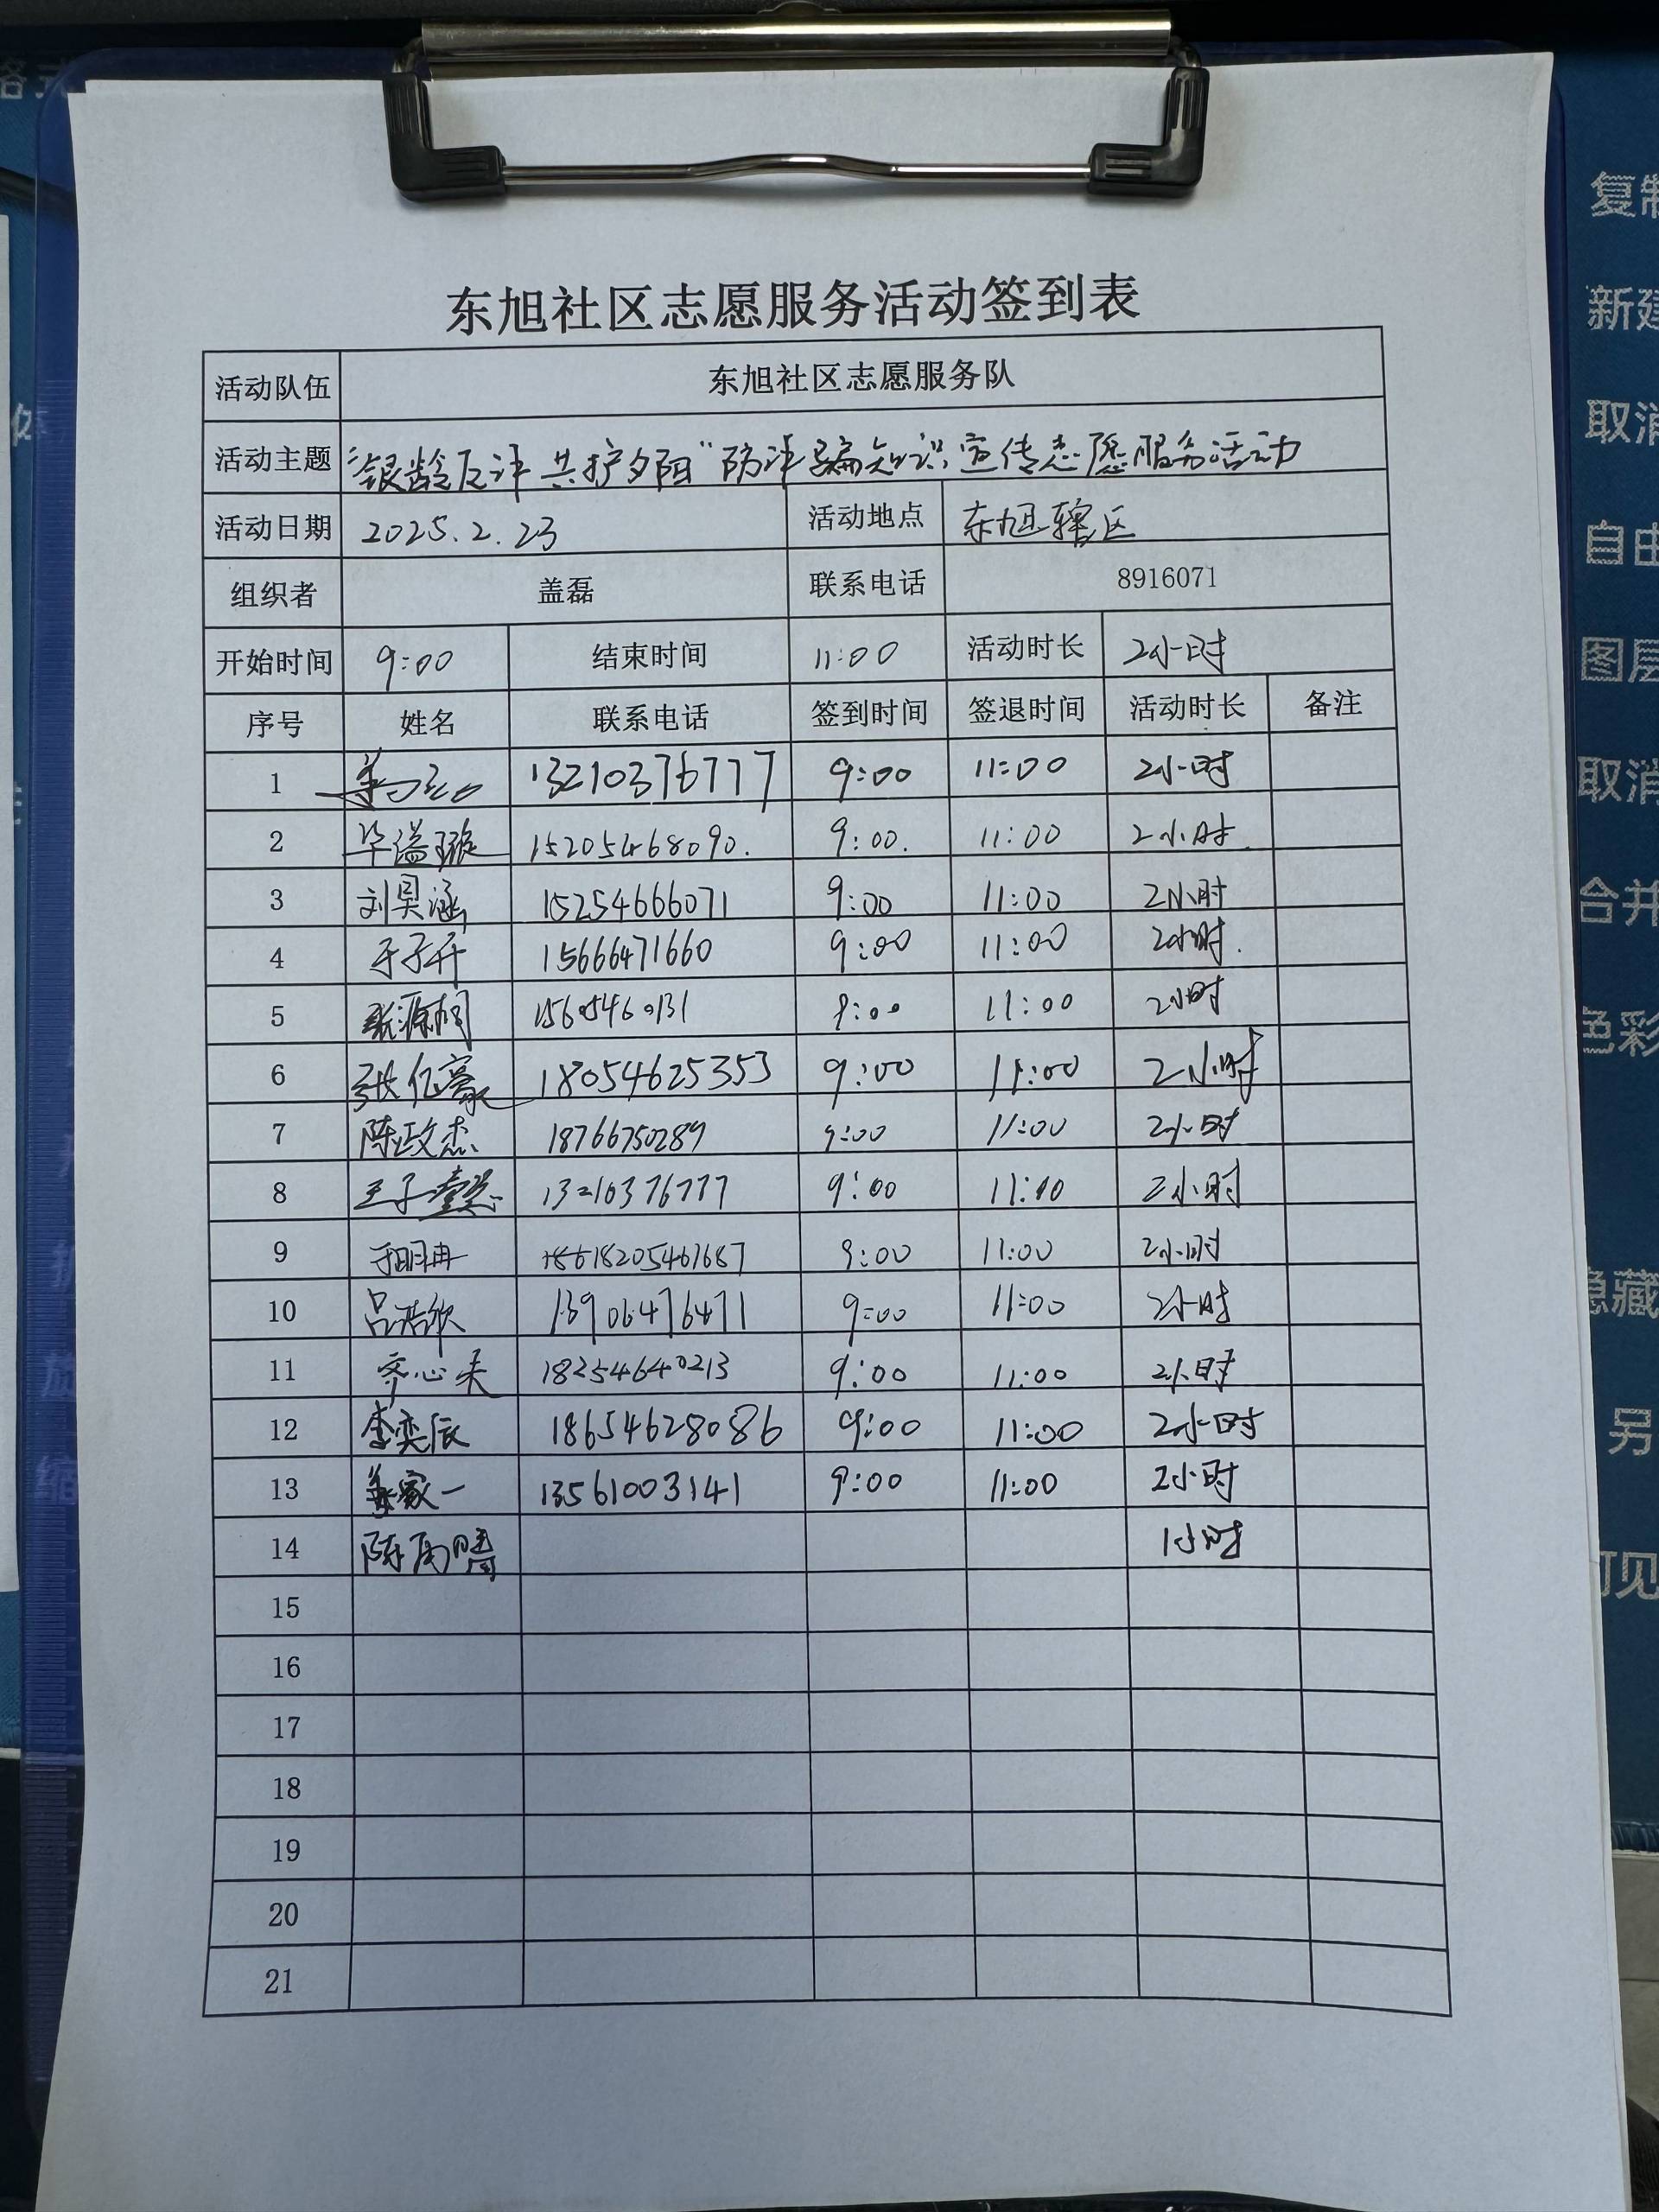 东旭社区志愿服务活动签到表
活动队伍 东旭社区志愿服务队
活动主题 “银龄反诈 共护夕阳”防诈骗知识宣传志愿服务活动
活动日期 2025.2.23 活动地点 东旭辖区
组织者 盖磊 联系电话 8916071
开始时间 9:00 结束时间 11:00 活动时长 2小时
序号 姓名 联系电话 签到时间 签退时间 活动时长 备注
1 13210376777 9:00 11:00 2小时
2 华溢璇 15205468090. 9:00. 11:00 2小时.
3 刘昊涵 15254666071 9:00 11:00 2小时
4 于子开 15666471660 9:00 11:00 2小时.
5 张源桐 15605460131 9:00 11:00 2小时
6 张亿豪 18054625353 9:00 11:00 2小时
7 陈政杰 18766750289 9:00 11:00 2小时
8 王子懿 13210376777 9:00 11:00 2小时
9 于明冉 18205461687 9:00 11:00 2小时
10 吕浩欣 13906476471 9:00 11:00 2小时
11 齐心来 18254640213 9:00 11:00 2小时
12 李奕辰 18654628086 9:00 11:00 2小时
13 姜家一 13561003141 9:00 11:00 2小时
14 陈雨 1小时
15
16
17
18
19
20
21
复制
新建
取消
自由
图层
取消
合并
色彩
隐藏
另
可见